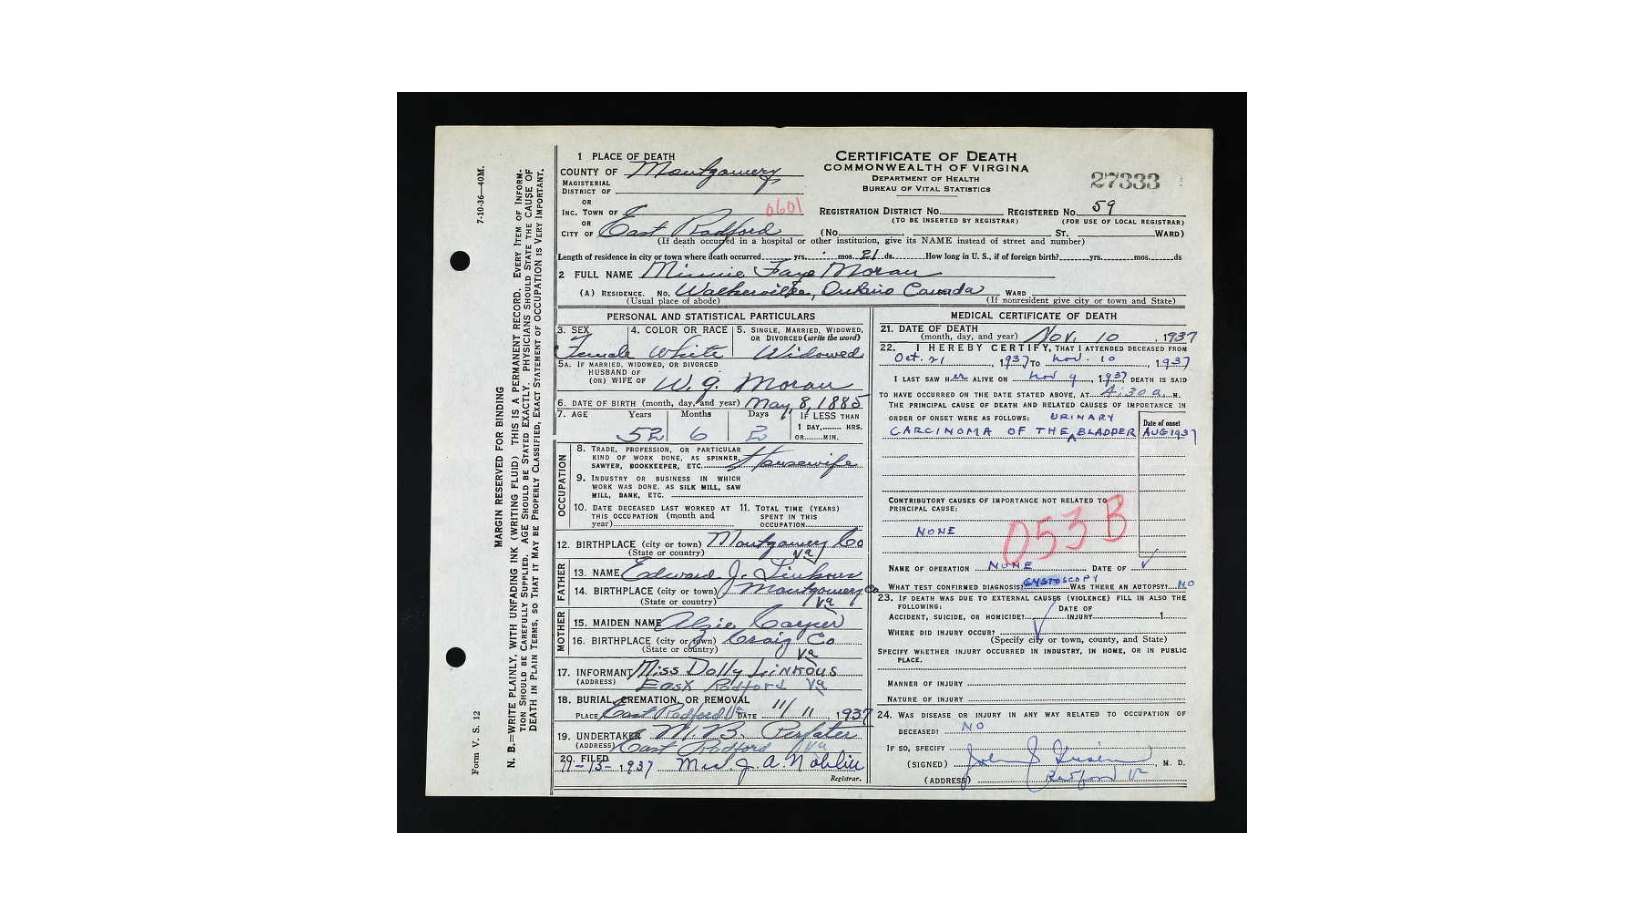 7-10-36—40M.
MARGIN RESERVED FOR BINDING
N. B.—WRITE PLAINLY, WITH UNFADING INK (WRITING FLUID) THIS IS A PERMANENT RECORD. EVERY ITEM OF INFORM-
TION SHOULD BE CAREFULLY SUPPLIED. AGE SHOULD BE STATED EXACTLY. PHYSICIANS SHOULD STATE THE CAUSE OF
DEATH IN PLAIN TERMS, SO THAT IT MAY BE PROPERLY CLASSIFIED. EXACT STATEMENT OF OCCUPATION IS VERY IMPORTANT.
Form V. S. 12
CERTIFICATE OF DEATH
COMMONWEALTH OF VIRGINA
DEPARTMENT OF HEALTH
BUREAU OF VITAL STATISTICS
27333
1 PLACE OF DEATH
COUNTY OF Montgomery
MAGISTERIAL
DISTRICT OF
OR
INC. TOWN OF 0601
OR
CITY OF East Radford
REGISTRATION DISTRICT NO. REGISTERED NO. 59
(TO BE INSERTED BY REGISTRAR) (FOR USE OF LOCAL REGISTRAR)
(No. ST. WARD)
(If death occurred in a hospital or other institution, give its NAME instead of street and number)
Length of residence in city or town where death occurred yrs. mos. 21 ds. How long in U. S., if of foreign birth? yrs. mos. ds
2 FULL NAME Minnie Faye Moran
(A) RESIDENCE. NO. Walkerville, Ontario Canada WARD
(Usual place of abode) (If nonresident give city or town and State)
PERSONAL AND STATISTICAL PARTICULARS
3. SEX 4. COLOR OR RACE 5. SINGLE, MARRIED, WIDOWED,
OR DIVORCED (write the word)
Female White Widowed
5A. IF MARRIED, WIDOWED, OR DIVORCED
HUSBAND OF
(OR) WIFE OF W. G. Moran
6. DATE OF BIRTH (month, day, and year) May 8, 1885
7. AGE Years Months Days IF LESS THAN
1 DAY, HRS.
52 6 2 OR MIN.
OCCUPATION
8. TRADE, PROFESSION, OR PARTICULAR
KIND OF WORK DONE, AS SPINNER,
SAWYER, BOOKKEEPER, ETC. Housewife
9. INDUSTRY OR BUSINESS IN WHICH
WORK WAS DONE, AS SILK MILL, SAW
MILL, BANK, ETC.
10. DATE DECEASED LAST WORKED AT 11. TOTAL TIME (YEARS)
THIS OCCUPATION (month and SPENT IN THIS
year) OCCUPATION
12. BIRTHPLACE (city or town) Montgomery Co
(State or country) Va
FATHER
13. NAME Edward J. Linkous
14. BIRTHPLACE (city or town) Montgomery Co
(State or country) Va
MOTHER
15. MAIDEN NAME Alzie Carper
16. BIRTHPLACE (city or town) Craig Co
(State or country) Va
17. INFORMANT Miss Dolly Linkous
(ADDRESS) East Radford Va
18. BURIAL, CREMATION, OR REMOVAL
PLACE East Radford Va DATE 11/11, 1937
19. UNDERTAKER M. B.
(ADDRESS) East Radford Va
20. FILED
11-13-1937 Mrs. J. A. Noblin
Registrar.
MEDICAL CERTIFICATE OF DEATH
21. DATE OF DEATH
(month, day, and year) Nov. 10, 1937
22. I HEREBY CERTIFY, THAT I ATTENDED DECEASED FROM
Oct. 21, 1937, TO Nov. 10, 1937
I LAST SAW HER ALIVE ON Nov 9, 1937 DEATH IS SAID
TO HAVE OCCURRED ON THE DATE STATED ABOVE, AT 4:30 a. M.
THE PRINCIPAL CAUSE OF DEATH AND RELATED CAUSES OF IMPORTANCE IN
ORDER OF ONSET WERE AS FOLLOWS: URINARY Date of onset
CARCINOMA OF THE BLADDER AUG 1937
CONTRIBUTORY CAUSES OF IMPORTANCE NOT RELATED TO
PRINCIPAL CAUSE:
NONE
053B
NAME OF OPERATION NONE DATE OF
WHAT TEST CONFIRMED DIAGNOSIS? CYSTOSCOPY WAS THERE AN AUTOPSY? NO
23. IF DEATH WAS DUE TO EXTERNAL CAUSES (VIOLENCE) FILL IN ALSO THE
FOLLOWING: DATE OF
ACCIDENT, SUICIDE, OR HOMICIDE? INJURY 1
WHERE DID INJURY OCCUR?
(Specify city or town, county, and State)
SPECIFY WHETHER INJURY OCCURRED IN INDUSTRY, IN HOME, OR IN PUBLIC
PLACE.
MANNER OF INJURY
NATURE OF INJURY
24. WAS DISEASE OR INJURY IN ANY WAY RELATED TO OCCUPATION OF
DECEASED? NO
IF SO, SPECIFY
(SIGNED) John J. M. D.
(ADDRESS) Radford Va